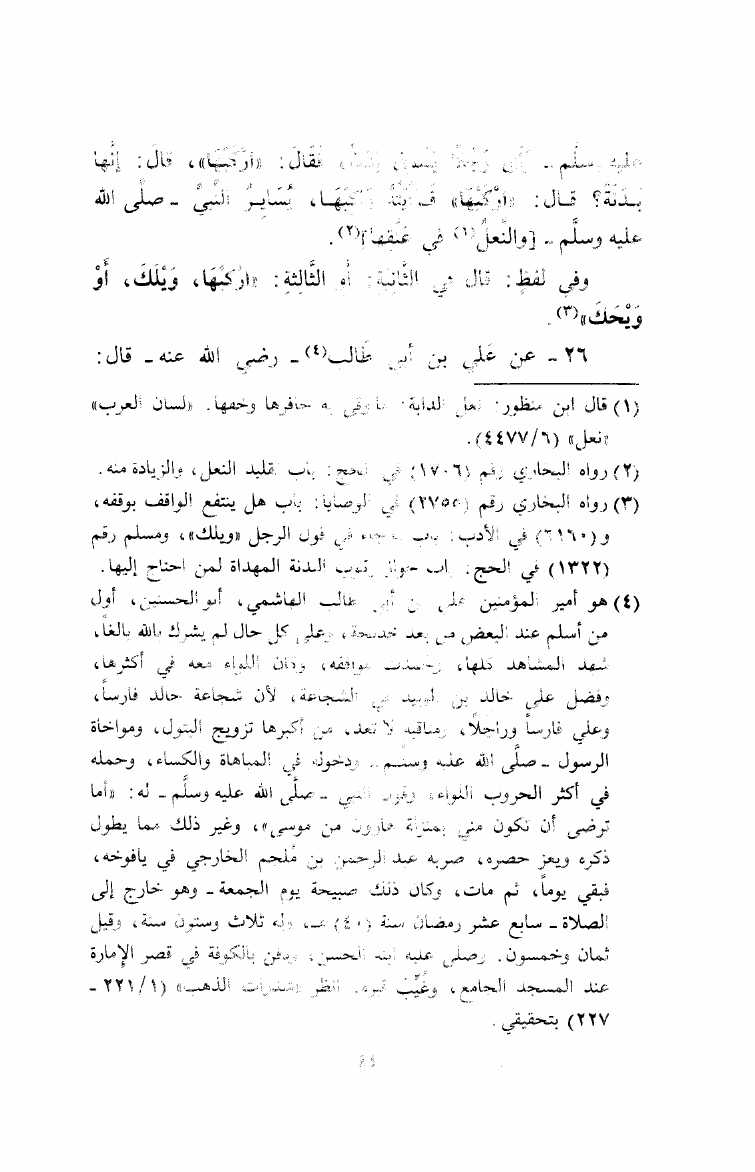 عليه وسلَّم ـ رَأَى رَجُلاً يَسُوقُ بَدَنَةً، فَقَالَ: «ارْكَبْهَا»، قَالَ: إِنَّها
بَـدَنَةٌ؟ قـال: «ارْكَبْهَا» فَـرَأَيْتُهُ رَاكِبَهَـا، يُسَايِـرُ النَّبِيَّ ـ صلَّى الله
عليه وسلَّم ـ [والنَّعلُ(١) في عُنُقِها](٢).
وفي لفظٍ: قال في الثَّانِيَةِ: أَو الثَّالِثةِ: «ارْكَبْهَا، وَيْلَكَ، أَوْ
وَيْحَكَ»(٣).
٢٦ ـ عن عَلي بن أبي طَالب(٤) ـ رضي الله عنه ـ قال:
(١) قال ابن منظور: نعل الدابة: ما وقي به حافرها وخفها. «لسان العرب»
«نعل» (٤٤٧٧/٦).
(٢) رواه البخاري رقم (١٧٠٦) في الحج: باب تقليد النعل، والزيادة منه.
(٣) رواه البخاري رقم (٢٧٥٥) في الوصايا: باب هل ينتفع الواقف بوقفه،
و(٦١٦٠) في الأدب: باب ما جاء في قول الرجل «ويلك»، ومسلم رقم
(١٣٢٢) في الحج: باب جواز ركوب البدنة المهداة لمن احتاج إليها.
(٤) هو أمير المؤمنين علي بن أبي طالب الهاشمي، أبو الحسنين، أول
من أسلم عند البعض من بعد خديجة، وعلى كل حال لم يشرك بالله بالغاً،
شهد المشاهد كلها، وحمدت مواقفه، وكان اللواء معه في أكثرها،
وفضل على خالد بن الوليد في الشجاعة، لأن شجاعة خالد فارساً،
وعلي فارساً وراجلاً، ومناقبه لا تعد، من أكبرها تزويج البتول، ومواخاة
الرسول ـ صلَّى الله عليه وسلَّم ـ ودخوله في المباهاة والكساء، وحمله
في أكثر الحروب اللواء، وقول النبي ـ صلَّى الله عليه وسلَّم ـ له: «أما
ترضى أن تكون مني بمنزلة هارون من موسى»، وغير ذلك مما يطول
ذكره ويعز حصره، ضربه عبد الرحمن بن مُلجم الخارجي في يافوخه،
فبقي يوماً، ثم مات، وكان ذلك صبيحة يوم الجمعة ـ وهو خارج إلى
الصلاة ـ سابع عشر رمضان سنة (٤٠) هـ، وله ثلاث وستون سنة، وقيل
ثمان وخمسون. وصلى عليه ابنه الحسن، ودفن بالكوفة في قصر الإمارة
عند المسجد الجامع، وغُيِّبَ قبره. انظر «شذرات الذهب» (٢٢١/١ ـ
٢٢٧) بتحقيقي.